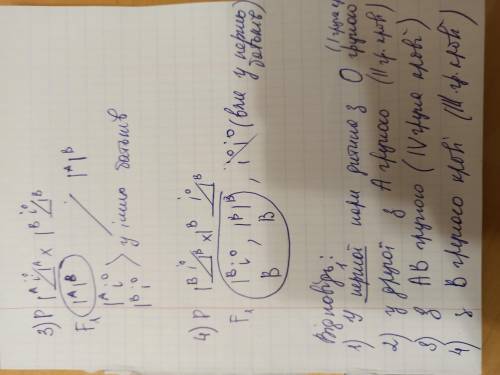 3) P I^A i^0 x I^B i^B
F₁ I^A I^B I^A I^B
I^A i^0
I^B i^0 > у іншо батьків
4) P I^B i^0 x I^B i^0
F₁ I^B i^0, I^B I^B, i^0 i^0 (вже у перших батьків)
B B
Відповідь:
1) у першої пари дитина з О групою (I група
2) у другої з А групою (II гр. крові)
3) з АВ групою (IV група крові)
4) з В групою крові (III гр. крові)